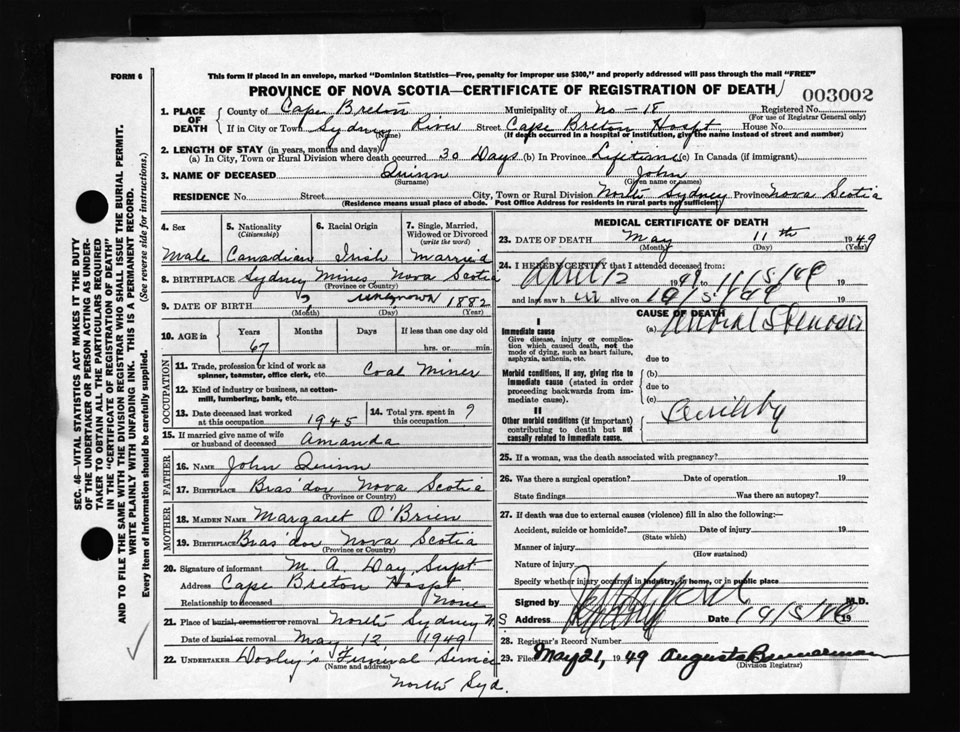 FORM 6
This form if placed in an envelope, marked "Dominion Statistics—Free, penalty for improper use $300," and properly addressed will pass through the mail "FREE"
PROVINCE OF NOVA SCOTIA—CERTIFICATE OF REGISTRATION OF DEATH
003002
1. PLACE OF DEATH
County of Cape Breton Municipality of No - 18 Registered No.
(For use of Registrar General only)
If in City or Town Sydney River Street Cape Breton Hospt House No.
(Name) (If death occurred in a hospital or institution, give the name instead of street and number)
2. LENGTH OF STAY (in years, months and days)
(a) In City, Town or Rural Division where death occurred 30 Days (b) In Province Lifetime (c) In Canada (if immigrant)
3. NAME OF DECEASED Quinn John
(Surname) (Given name or names)
RESIDENCE No. Street City, Town or Rural Division North Sydney Province Nova Scotia
(Residence means usual place of abode. Post Office Address for residents in rural parts not sufficient)
4. Sex
Male
5. Nationality
(Citizenship)
Canadian
6. Racial Origin
Irish
7. Single, Married, Widowed or Divorced
(write the word)
Married
8. BIRTHPLACE Sydney Mines Nova Scotia
(Province or Country)
9. DATE OF BIRTH ? unknown 1882
(Month) (Day) (Year)
10. AGE in
Years Months Days If less than one day old
67 hrs. or min.
OCCUPATION
11. Trade, profession or kind of work as spinner, teamster, office clerk, etc. Coal Miner
12. Kind of industry or business, as cotton-mill, lumbering, bank, etc.
13. Date deceased last worked at this occupation 1945
14. Total yrs. spent in ?
15. If married give name of wife or husband of deceased Amanda
FATHER
16. NAME John Quinn
17. BIRTHPLACE Bras'dor Nova Scotia
(Province or Country)
MOTHER
18. MAIDEN NAME Margaret O'Brien
19. BIRTHPLACE Bras'dor Nova Scotia
(Province or Country)
20. Signature of informant M. A. Day, Supt
Address Cape Breton Hospt
Relationship to deceased None
21. Place of burial, cremation or removal North Sydney N S
Date of burial or removal May 12 1949
22. UNDERTAKER Dooley's Funeral Service
(Name and address)
North Syd.
MEDICAL CERTIFICATE OF DEATH
23. DATE OF DEATH May 11th 1949
(Month) (Day) (Year)
24. I HEREBY CERTIFY that I attended deceased from:
April 12 1949 to 11/5/49 19
and last saw h im alive on 10/5/49 19
CAUSE OF DEATH
I
Immediate cause
Give disease, injury or complication which caused death, not the mode of dying, such as heart failure, asphyxia, asthenia, etc.
(a) Mitral Stenosis
due to
Morbid conditions, if any, giving rise to immediate cause (stated in order proceeding backwards from immediate cause).
(b)
due to
(c)
II
Other morbid conditions (if important) contributing to death but not causally related to immediate cause.
Senility
25. If a woman, was the death associated with pregnancy?
26. Was there a surgical operation? Date of operation 19
State findings Was there an autopsy?
27. If death was due to external causes (violence) fill in also the following:—
Accident, suicide or homicide? Date of injury 19
(State which)
Manner of injury
(How sustained)
Nature of injury
Specify whether injury occurred in industry, in home, or in public place
Signed by M.D.
Address Sydney Date 19/5/49 19
28. Registrar's Record Number
29. Filed May 21, 1949 Augusta Bannerman
(Division Registrar)
SEC. 46—VITAL STATISTICS ACT MAKES IT THE DUTY
OF THE UNDERTAKER OR PERSON ACTING AS UNDERTAKER TO OBTAIN ALL THE PARTICULARS REQUIRED
IN THE "CERTIFICATE OF REGISTRATION OF DEATH"
AND TO FILE THE SAME WITH THE DIVISION REGISTRAR WHO SHALL ISSUE THE BURIAL PERMIT.
WRITE PLAINLY WITH UNFADING INK. THIS IS A PERMANENT RECORD.
Every item of information should be carefully supplied. (See reverse side for instructions.)